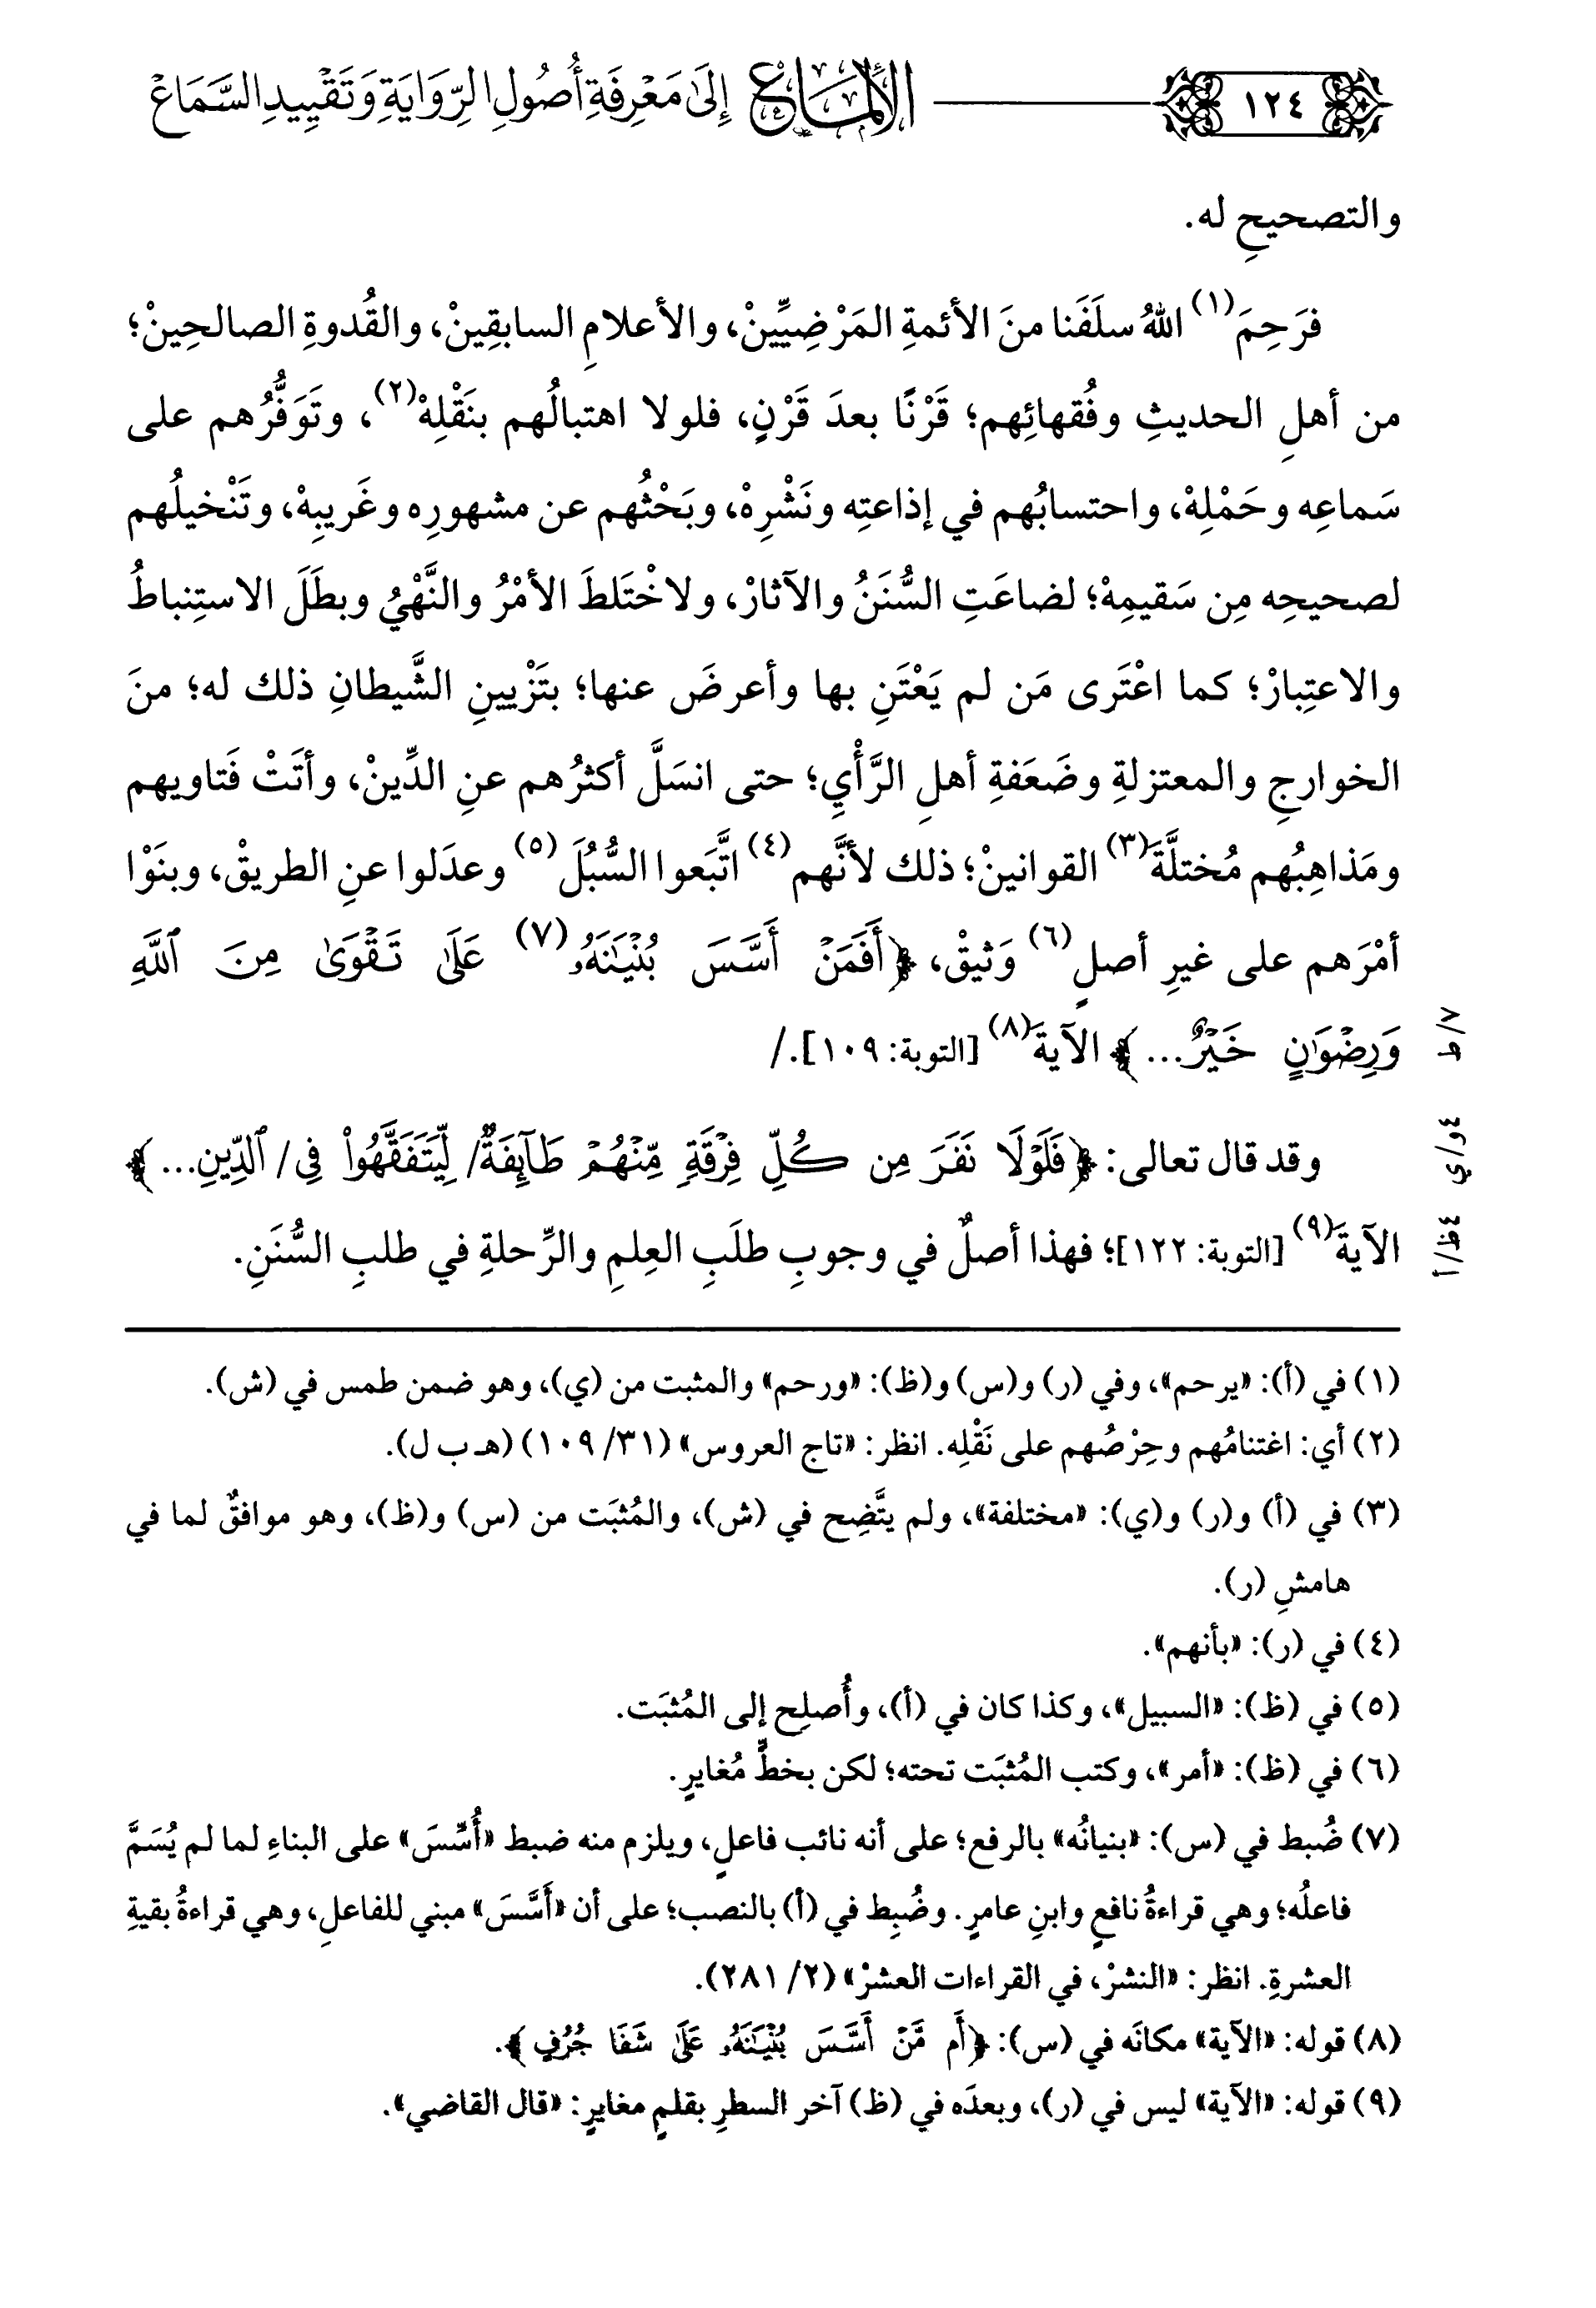 ١٢٤ الإلماع إِلَى مَعْرِفَةِ أُصُولِ الرِّوَايَةِ وَتَقْيِيدِ السَّمَاعْ
والتصحيحِ له.
فرَحِمَ(١) اللهُ سلَفَنا منَ الأئمةِ المَرْضِيِّينْ، والأعلامِ السابقِينْ، والقُدوةِ الصالحِينْ؛
من أهلِ الحديثِ وفُقهائِهم؛ قَرْنًا بعدَ قَرْنٍ، فلولا اهتبالُهم بنَقْلِهْ(٢)، وتَوَفُّرُهم على
سَماعِه وحَمْلِهْ، واحتسابُهم في إذاعتِه ونَشْرِهْ، وبَحْثُهم عن مشهورِه وغَريبِهْ، وتَنْخيلُهم
لصحيحِه مِن سَقيمِهْ؛ لضاعَتِ السُّنَنُ والآثارْ، ولاخْتَلطَ الأمْرُ والنَّهْيُ وبطَلَ الاستِنباطُ
والاعتِبارْ؛ كما اعْتَرى مَن لم يَعْتَنِ بها وأعرضَ عنها؛ بتَزْيينِ الشَّيطانِ ذلك له؛ منَ
الخوارجِ والمعتزلةِ وضَعَفةِ أهلِ الرَّأْيِ؛ حتى انسَلَّ أكثرُهم عنِ الدِّينْ، وأتَتْ فَتاويهم
ومَذاهِبُهم مُختلَّةَ(٣) القوانينْ؛ ذلك لأنَّهم(٤) اتَّبَعوا السُّبُلَ(٥) وعدَلوا عنِ الطريقْ، وبنَوْا
أمْرَهم على غيرِ أصلٍ(٦) وَثيقْ، ﴿أَفَمَنْ أَسَّسَ بُنْيَـٰنَهُۥ(٧) عَلَىٰ تَقْوَىٰ مِنَ ٱللَّهِ
وَرِضْوَٰنٍ خَيْرٌ...﴾ الآيةَ(٨) [التوبة: ١٠٩]./
٧/ظ
وقد قال تعالى: ﴿فَلَوْلَا نَفَرَ مِن كُلِّ فِرْقَةٍ مِّنْهُمْ طَآئِفَةٌ/ لِّيَتَفَقَّهُوا۟ فِى/ ٱلدِّينِ...﴾
٤و/ي
الآيةَ(٩) [التوبة: ١٢٢]؛ فهذا أصلٌ في وجوبِ طلَبِ العِلمِ والرِّحلةِ في طلبِ السُّنَنِ.
٤ظ/أ
(١) في (أ): «يرحم»، وفي (ر) و(س) و(ظ): «ورحم» والمثبت من (ي)، وهو ضمن طمس في (ش).
(٢) أي: اغتنامُهم وحِرْصُهم على نَقْلِه. انظر: «تاج العروس» (٣١/ ١٠٩) (هـ ب ل).
(٣) في (أ) و(ر) و(ي): «مختلفة»، ولم يتَّضِح في (ش)، والمُثبَت من (س) و(ظ)، وهو موافقٌ لما في
هامشِ (ر).
(٤) في (ر): «بأنهم».
(٥) في (ظ): «السبيل»، وكذا كان في (أ)، وأُصلِح إلى المُثبَت.
(٦) في (ظ): «أمر»، وكتب المُثبَت تحته؛ لكن بخطٍّ مُغايرٍ.
(٧) ضُبط في (س): «بنيانُه» بالرفع؛ على أنه نائب فاعلٍ، ويلزم منه ضبط «أُسِّسَ» على البناءِ لما لم يُسَمَّ
فاعلُه؛ وهي قراءةُ نافعٍ وابنِ عامرٍ. وضُبِط في (أ) بالنصب؛ على أن «أَسَّسَ» مبني للفاعلِ، وهي قراءةُ بقيةِ
العشرةِ. انظر: «النشرْ، في القراءات العشرْ» (٢/ ٢٨١).
(٨) قوله: «الآية» مكانَه في (س): ﴿أَم مَّنْ أَسَّسَ بُنْيَـٰنَهُۥ عَلَىٰ شَفَا جُرُفٍ﴾.
(٩) قوله: «الآية» ليس في (ر)، وبعدَه في (ظ) آخر السطرِ بقلمٍ مغايرٍ: «قال القاضي».